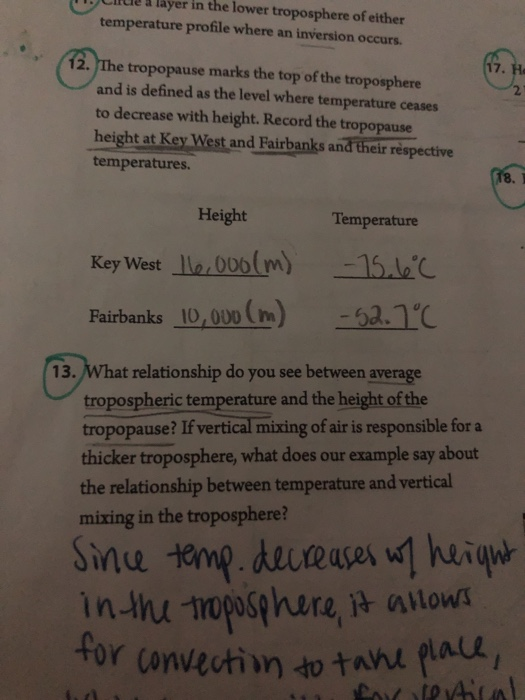 11. Circle a layer in the lower troposphere of either
temperature profile where an inversion occurs.
12. The tropopause marks the top of the troposphere
and is defined as the level where temperature ceases
to decrease with height. Record the tropopause
height at Key West and Fairbanks and their respective
temperatures.
Height Temperature
Key West 16,000(m) -75.6°C
Fairbanks 10,000(m) -52.7°C
13. What relationship do you see between average
tropospheric temperature and the height of the
tropopause? If vertical mixing of air is responsible for a
thicker troposphere, what does our example say about
the relationship between temperature and vertical
mixing in the troposphere?
Since temp. decreases w/ height
in the troposphere, it allows
for convection to take place,
for vertical
17. H
2
18.